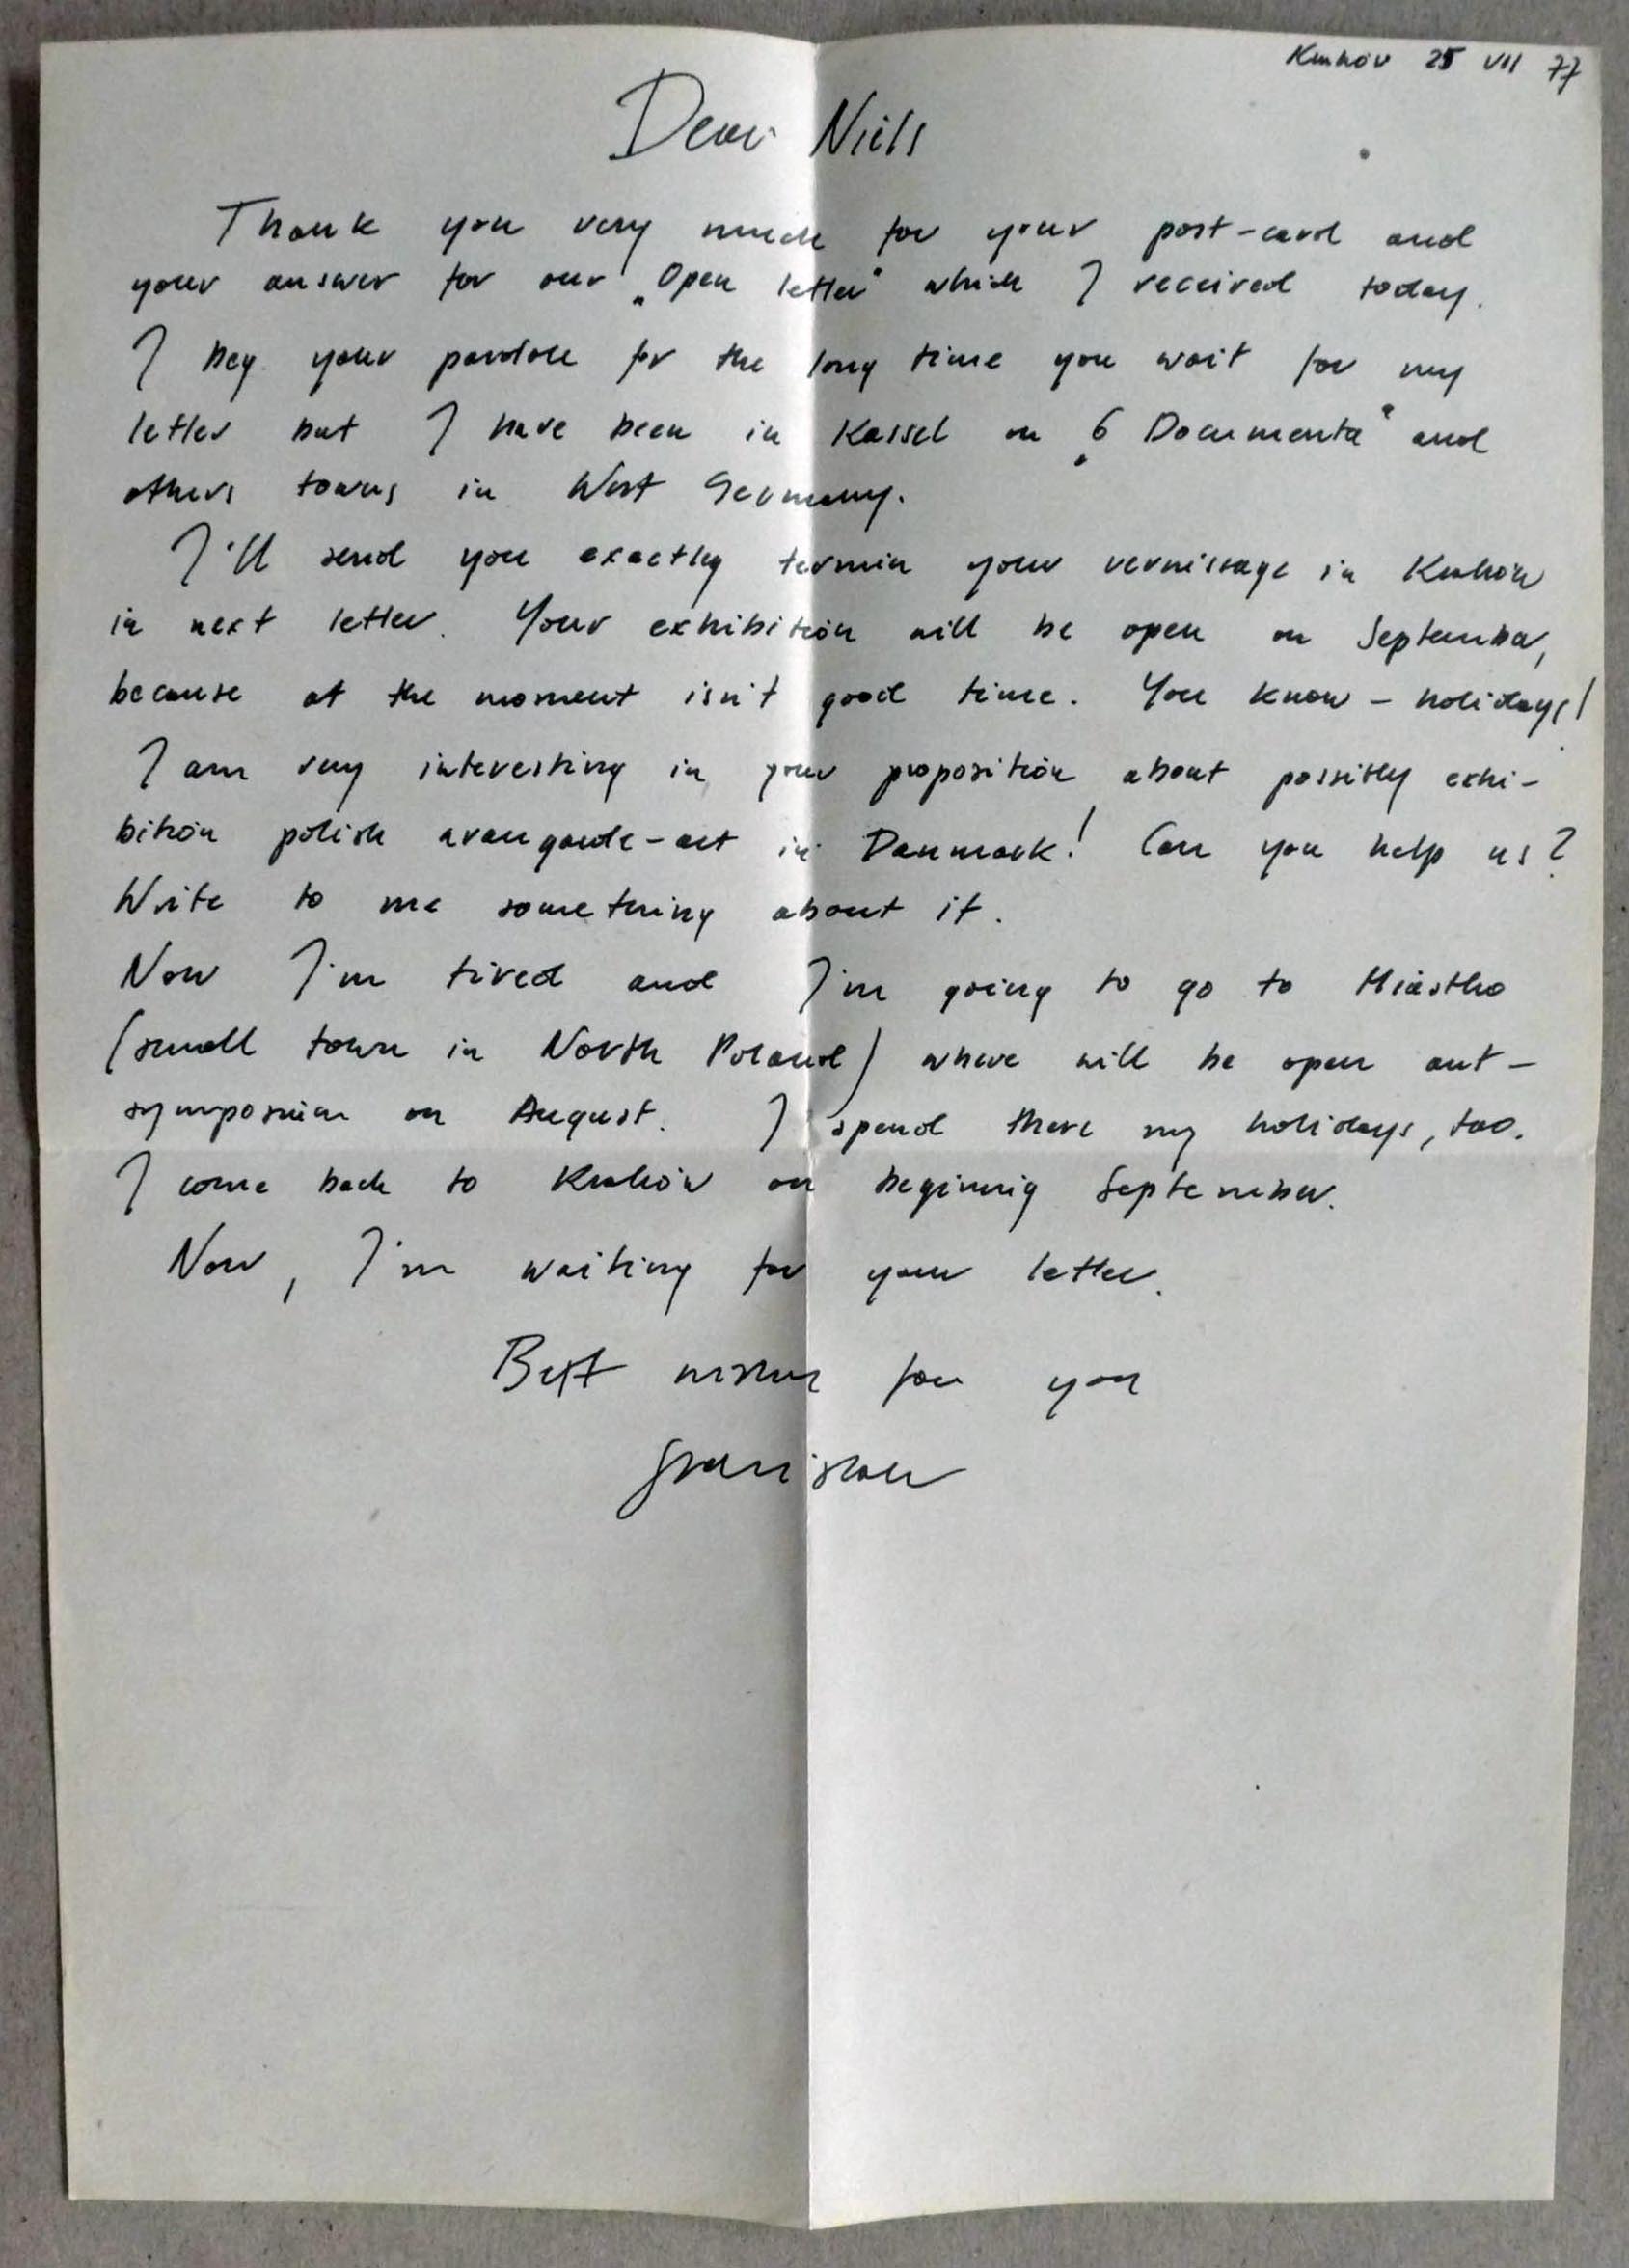 Kraków 25 VII 77
Dear Niels
Thank you very much for your post-card and
your answer for our „Open letter" which I received today.
I beg your pardon for the long time you wait for my
letter but I have been in Kassel on „6 Documenta" and
others towns in West Germany.
I'll send you exactly termin your vernissage in Kraków
in next letter. Your exhibition will be open on September,
because at the moment isn't good time. You know - holidays!
I am very interesting in your proposition about possibly exhi-
bition polish avangarde-art in Danmark! Can you help us?
Write to me something about it.
Now I'm tired and I'm going to go to Miastko
(small town in North Poland) where will be open art-
symposium on August. I spend there my holidays, too.
I come back to Kraków on beginnig September.
Now, I'm waiting for your letter.
Best wishes for you
Stanisław